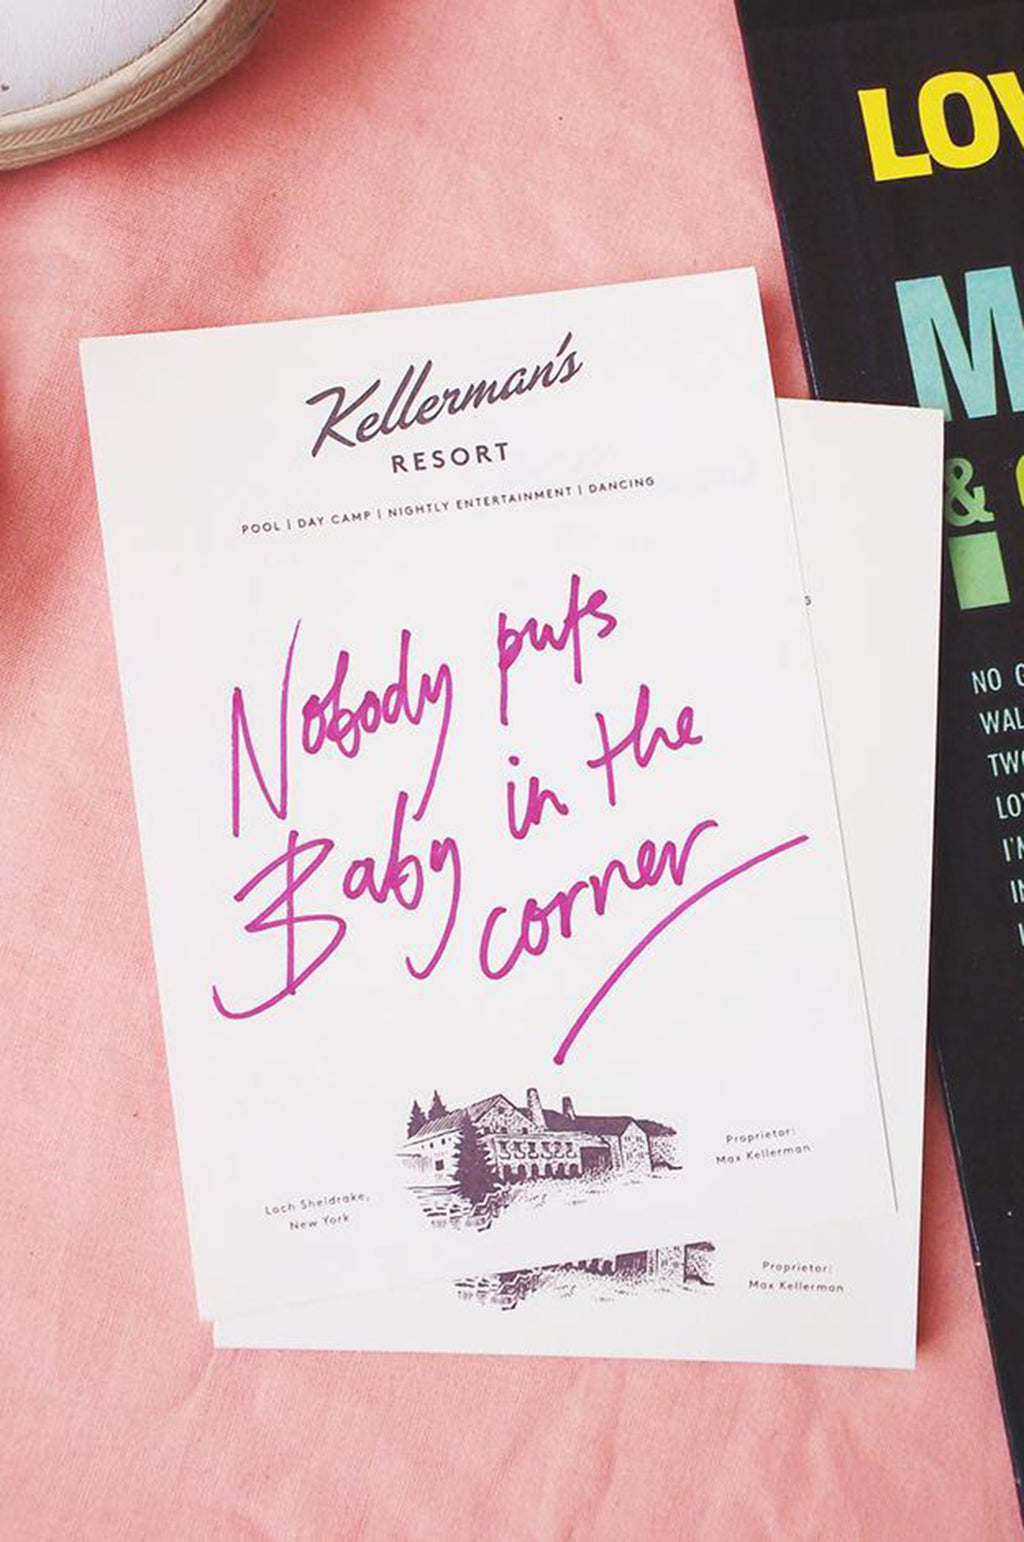 Kellerman's
RESORT
POOL | DAY CAMP | NIGHTLY ENTERTAINMENT | DANCING
Nobody puts
Baby in the
corner
Loch Sheldrake,
New York
Proprietor:
Max Kellerman
Proprietor:
Max Kellerman
LOV
M
&
NO G
WAL
TWO
LOV
I'M
IN